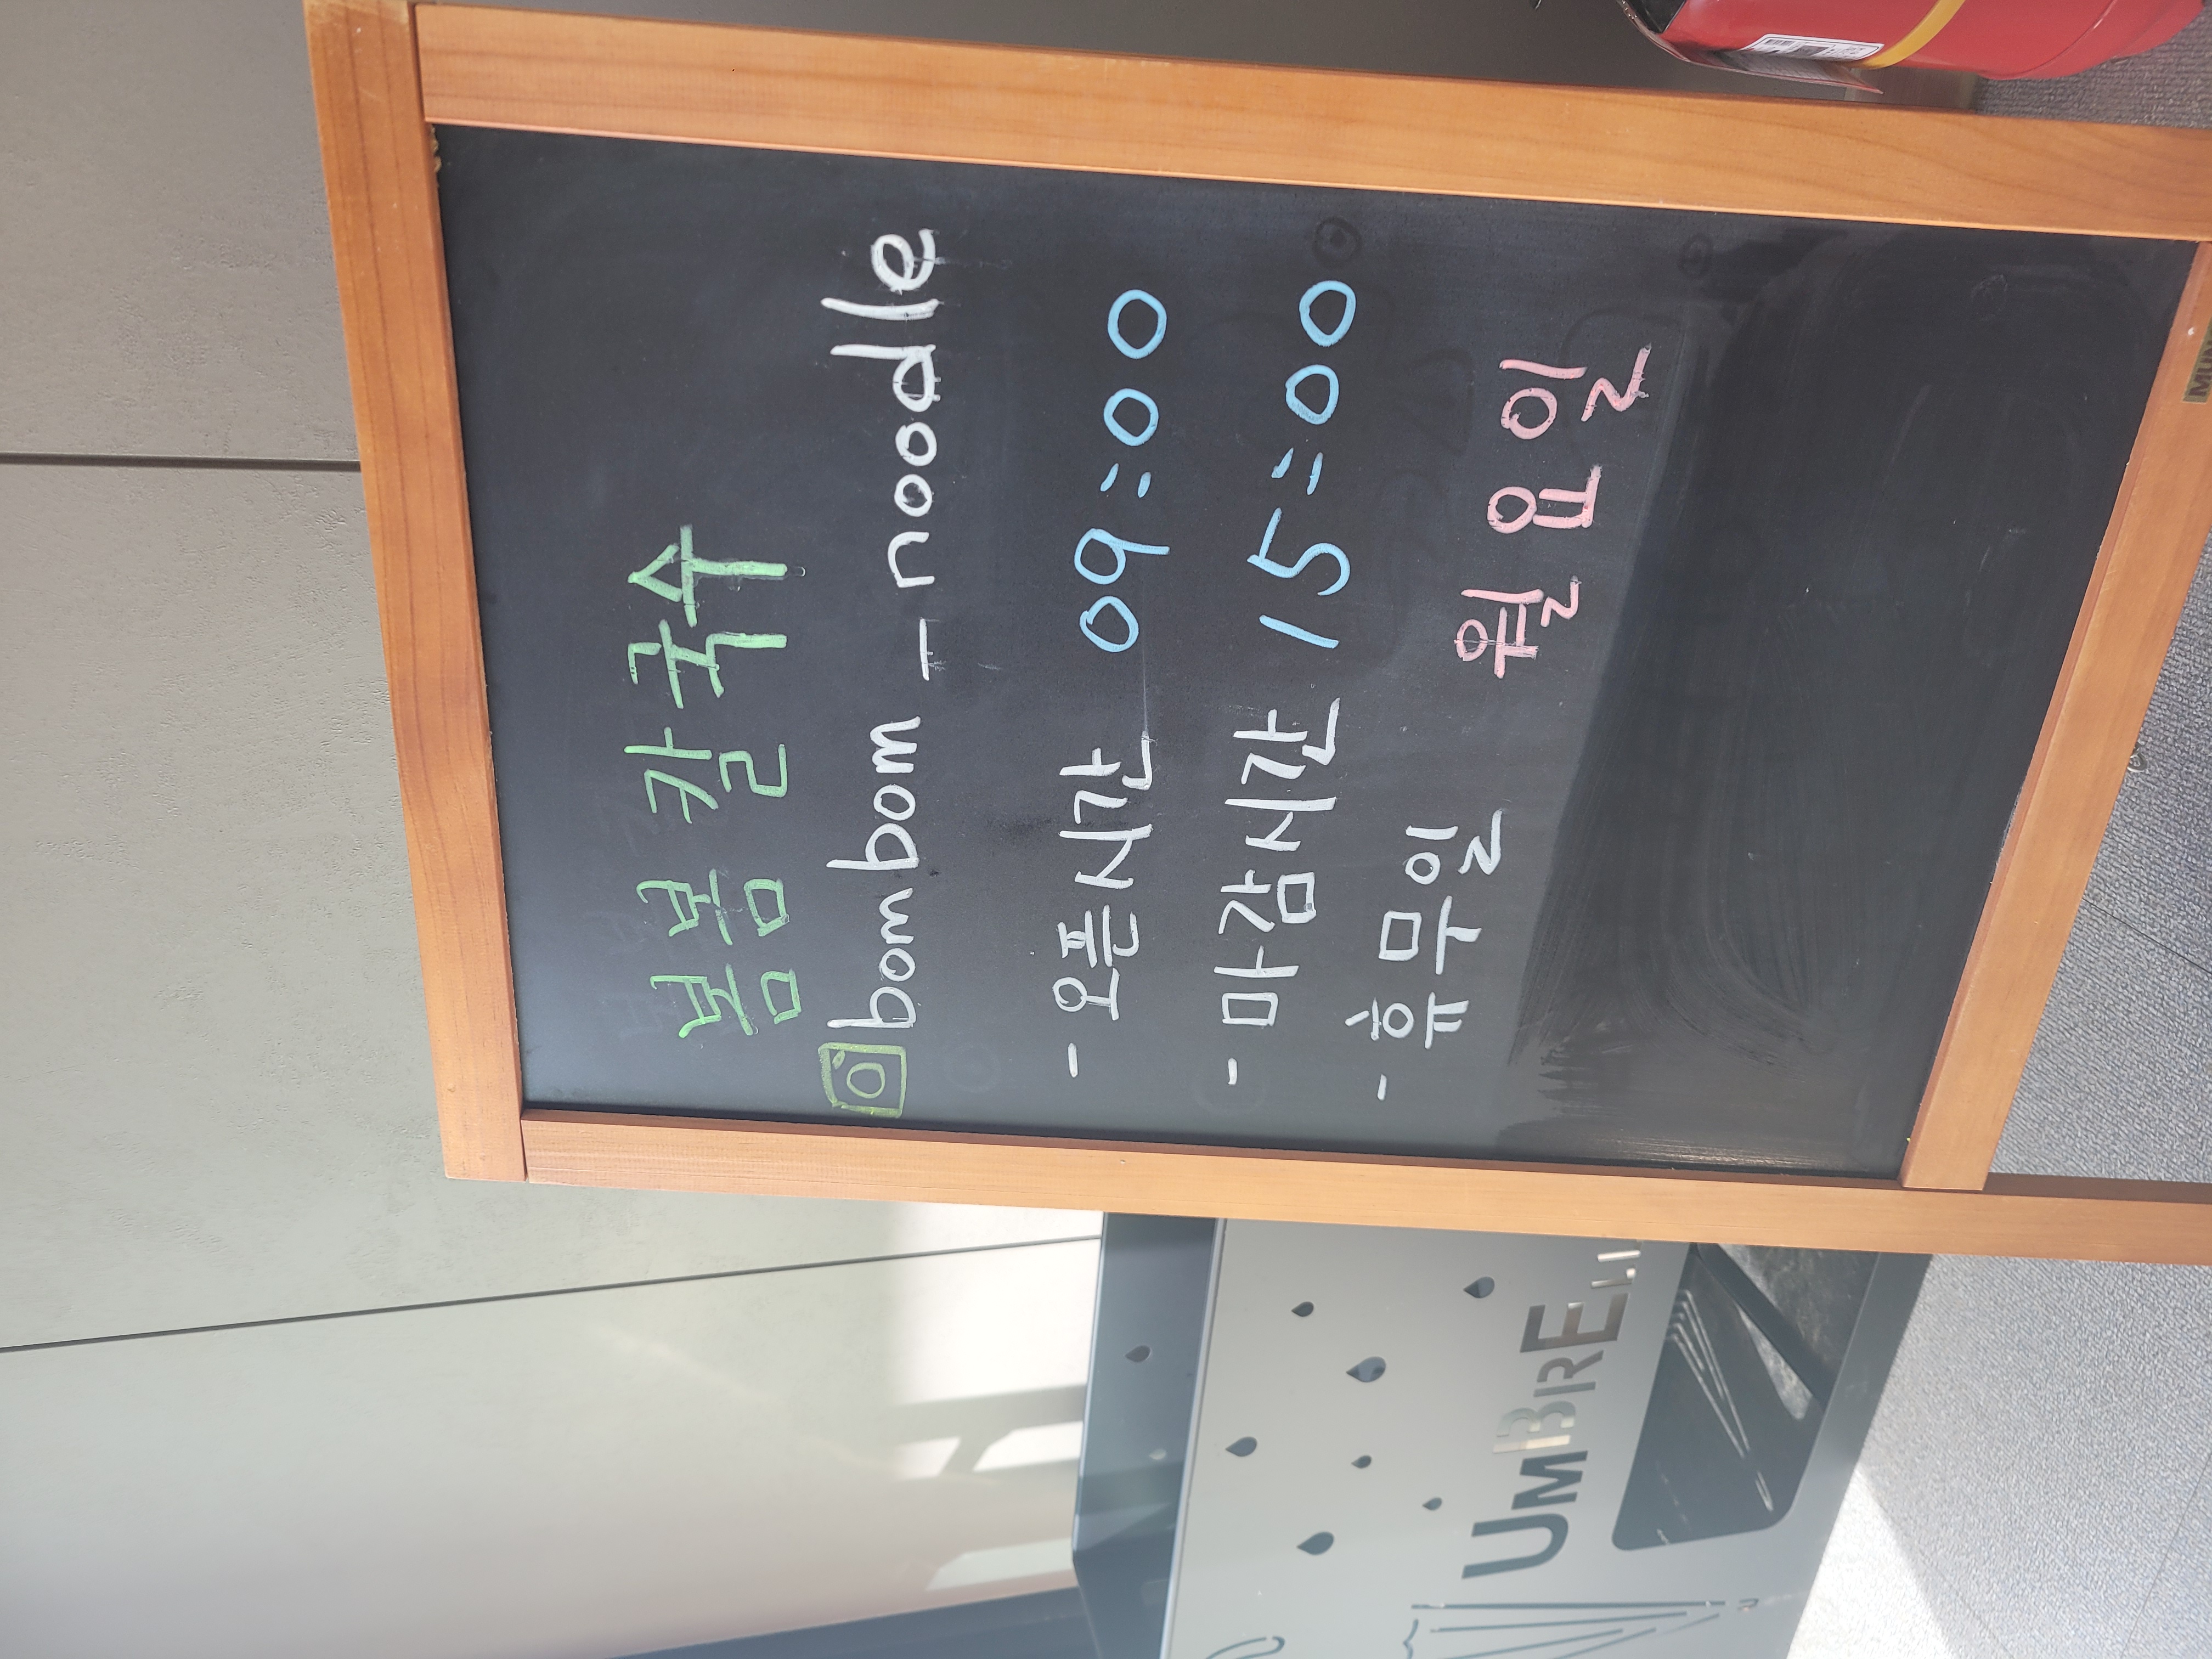 봄봄 칼국수
bombom_noodle
- 오픈시간 09:00
- 마감시간 15:00
- 휴무일 월요일
UMBREL